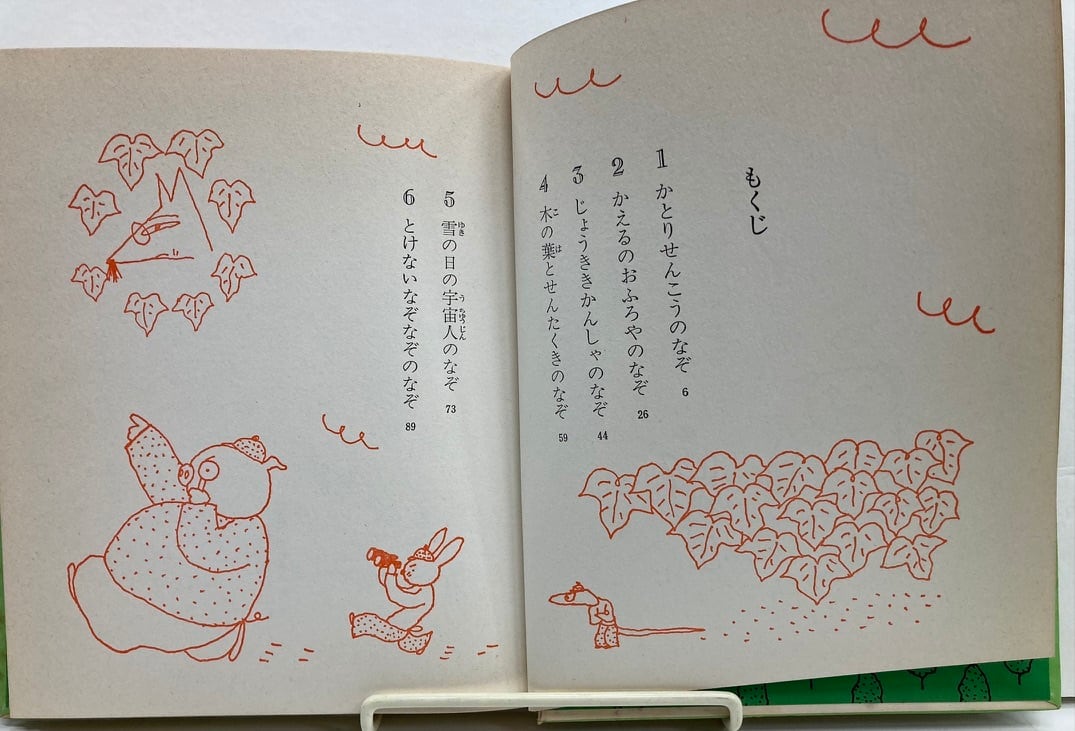 もくじ
1 かとりせんこうのなぞ 6
2 かえるのおふろやのなぞ 26
3 じょうききかんしゃのなぞ 44
4 木の葉とせんたくきのなぞ 59
5 雪の日の宇宙人のなぞ 73
6 とけないなぞなぞのなぞ 89